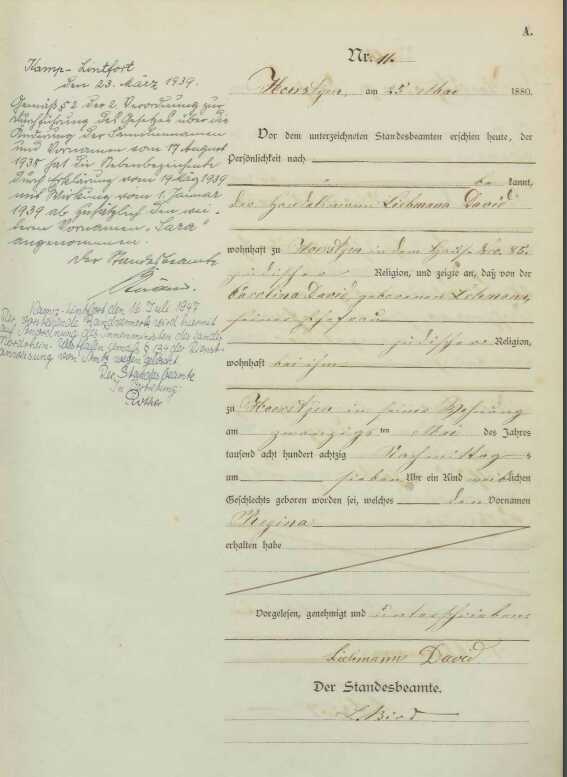 A.
Nr. 11.
Hoerstgen, am 25 Mai 1880.
Vor dem unterzeichneten Standesbeamten erschien heute, der
Persönlichkeit nach
be kannt,
der Handelsmann Liebmann David
wohnhaft zu Hoerstgen in dem Hause No. 85.
jüdischer Religion, und zeigte an, daß von der
Carolina David, geborenen Liebmann,
seiner Ehefrau
jüdischer Religion,
wohnhaft bei ihm
zu Hoerstgen in seiner Wohnung
am zwanzigsten Mai des Jahres
tausend acht hundert achtzig Nachmittag s
um sieben Uhr ein Kind weiblichen
Geschlechts geboren worden sei, welches den Vornamen
Regina
erhalten habe
Vorgelesen, genehmigt und unterschrieben
Liebmann David
Der Standesbeamte.
Kamp-Lintfort
den 23. März 1939.
Gemäß § 2 der 2. Verordnung zur
Durchführung des Gesetzes über die
Änderung der Familiennamen
und Vornamen vom 17. August
1938 hat die Nebenbezeichnete
durch Erklärung vom 19. März 1939
mit Wirkung vom 1. Januar
1939 ab zusätzlich den wei-
teren Vornamen "Sara"
angenommen.
Der Standesbeamte
Kamp-Lintfort den 16 Juli 1947
Der vorstehende Randvermerk wird hiermit
auf Anordnung des Innenministers des Landes
Nordrhein-Westfalen gemäß § 134 der Dienst-
anweisung von Amts wegen gelöscht
Der Standesbeamte
In Vertretung